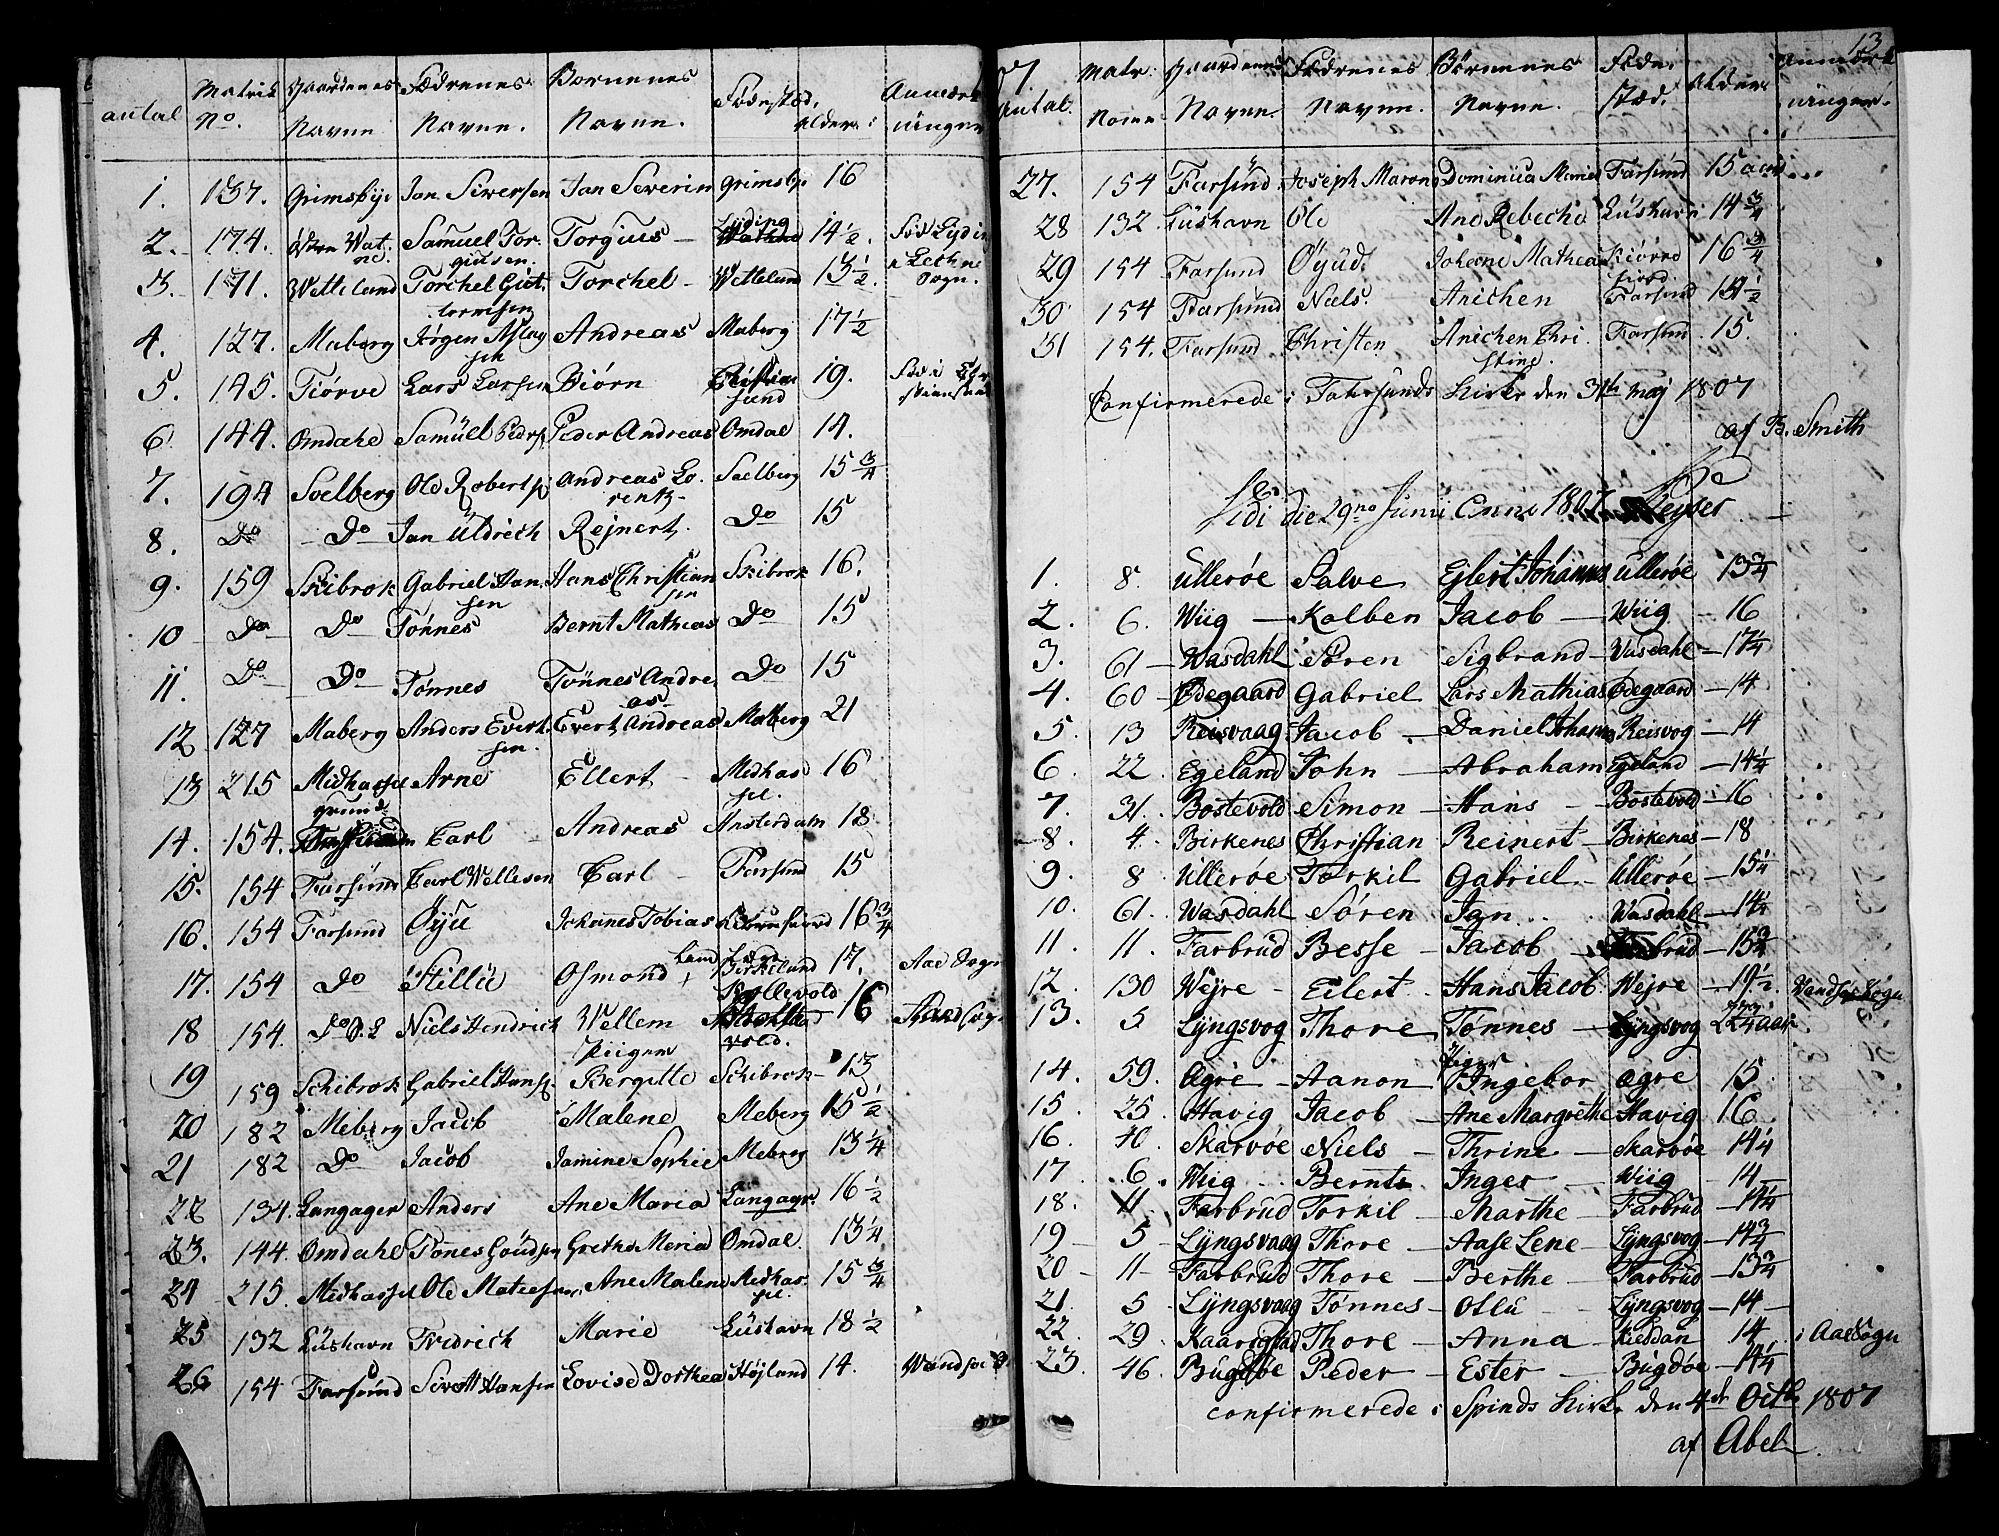 antal Matrik No. Gaardenes Navne Fædrenes Navne. Børnenes Navne. Fødestæd. Alder: Anmærkninger
1. 137. Grimsbye Jan Siversen Jan Severin Grimsby 16
2. 174. Østre Watne. Samuel Torgiusen. Torgius — Lyding 14 1/2.
3. 171. Wetteland Torchel Guttormsen Torchel — Wetteland 13 1/2. Sogn.
4. 127. Maberg Jørgen Aslagsen Andreas Maberg 17 1/2
5. 145. Tiørve Lars Larsen Biørn Christiansund 19.
6 144. Omdahl Samuel Peders. Peder Andreas Omdal 14.
7. 194 Svelberg Ole Roberts. Andreas Lorentz — Svelberg 15 3/4
8. Do — Do — Jan Üldrich Rejnert. Do 15
9. 159 Skibrok Gabriel Hansen Hans Christian Skibrok 16.
10 Do Do Tønnes Bernt Mathias Do 15
11. Do Do Tønnes Tønnes Andreas Do 15
12 127 Maberg Anders Evertsen. Evert Andreas Malberg 21
13 215 Midhassel Arne Ellert — Midhassel. 16
14. 154. grund Carl — Andreas Amsterdam 18
15. 154 Farsund Carl Wellesen Carl — Farsund 15
16. 154 Farsund Øyü Johannes Tobias 16 3/4
17. 154 Do Stillü Osmond Birkeland 17. Aae Sogn
18 154. Do Niels Hendrich Wellem 16
Piiger
19 159 Schibrok Gabriel Hans. Bergitte Schibrok — 13
20 182 Meberg Jacob Malene Meberg 15 1/2
21 182 Do Jacob Jamine Sophie Meberg 13 1/4
22 134. Langager Anders Ane Maria Langagr. 16 1/2
23. 144. Omdahl Tønes Gundsen Grethe Meria Omdal. 13 1/4
24 215. Midhassel Ole Ane Malene Midhassel. 15 3/4
25 132 Lushavn Fridrich Marie Lushavn 18 1/2
26 154 Farsund Sivert Hansen Lovise Dorthea Højland 14.
13
Antal. Matr: Gaardenes Navne. Fædrenes Navne. Børnenes Navne. Fødestæd. Alder Anmærkninger.
27. 154 Farsünd Joseph Dominica Farsund 15 aar
28 132. Lushavn Ole Ane Rebecke Lushavn 14 3/4
29 154 Farsund Øyud. Johanne Mathea 16 3/4
30 154 Farsund Niels. Anichen Farsund 14 1/2
31 154. Farsund Christen Anichen Christine. Farsund. 15.
Confirmerede i Farsunds Kirke den maj 1807
af B. Smith
Vidi die 29no Junii Anno 1807. Keyser
1. 8. Ullerøe Salve Ejlert Johannes Ullerøe 13 3/4
2. 6. Wiig — Kolben Jacob — Wiig — 16
3. 61 — Wasdahl Søren Sigbrand — Wasdahl — 17 1/4
4. 60 — Ødegaard Gabriel Lars Mathias Ødegaard — 14
5. 13 Reisvaag Jacob — Daniel Johannes Reisvog — 14
6. 22 Egeland John — Abraham Egeland — 14 1/4
7. 31. Bøstevold Simon — Hans — Bøstevold — 16
8. 4. Birkenes Christian Reinert — Birkenes — 18
9. 8 Ullerøe Torkil Gabriel — Ullerøe — 15 1/4
10. 61. Wasdahl Søren Jan Wasdahl — 14 1/4
11. 11. Farbrüd Besse — Jacob — Farbrüd — 15 3/4
12. 130 Wejre — Eilert — Hans Jacob. Wejre — 19 1/2. Sogn
13. 5 Lyngsvog Thore Tønnes — Lyngsvog
Piger
14. 59. Ogre — Aanon Ingebor Ogre 15.
15. 25 Havig Jacob — Ane Margrethe Havig 16.
16. 40. Skarvøe Niels — Thrine — Skarvøe 14 1/4
17 6. Wiig Bernt — Inger — Wiig — 14
18. 11. Farbrüd Torkil — Marthe — Farbrüd — 14 1/4
19 — 5 — Lyngsvaag Thore — Aase Lene — Lyngsvog — 14 3/4
20 — 11 — Farbrüd Thore — Berthe — Farbrüd — 13 3/4
21. 5 Lyngsvaag Tønnes — Ollü — Lyngsvog — 14 —
22. 29 Kaarigstad Thore — Anna — Kieddan 14 i Aae Sogn
23. 46. Bugdøe Peder — Ester — Bugdøe — 14 1/4
Confirmerede i Spinds Kirke den 4de Octb. 1807
af Abel